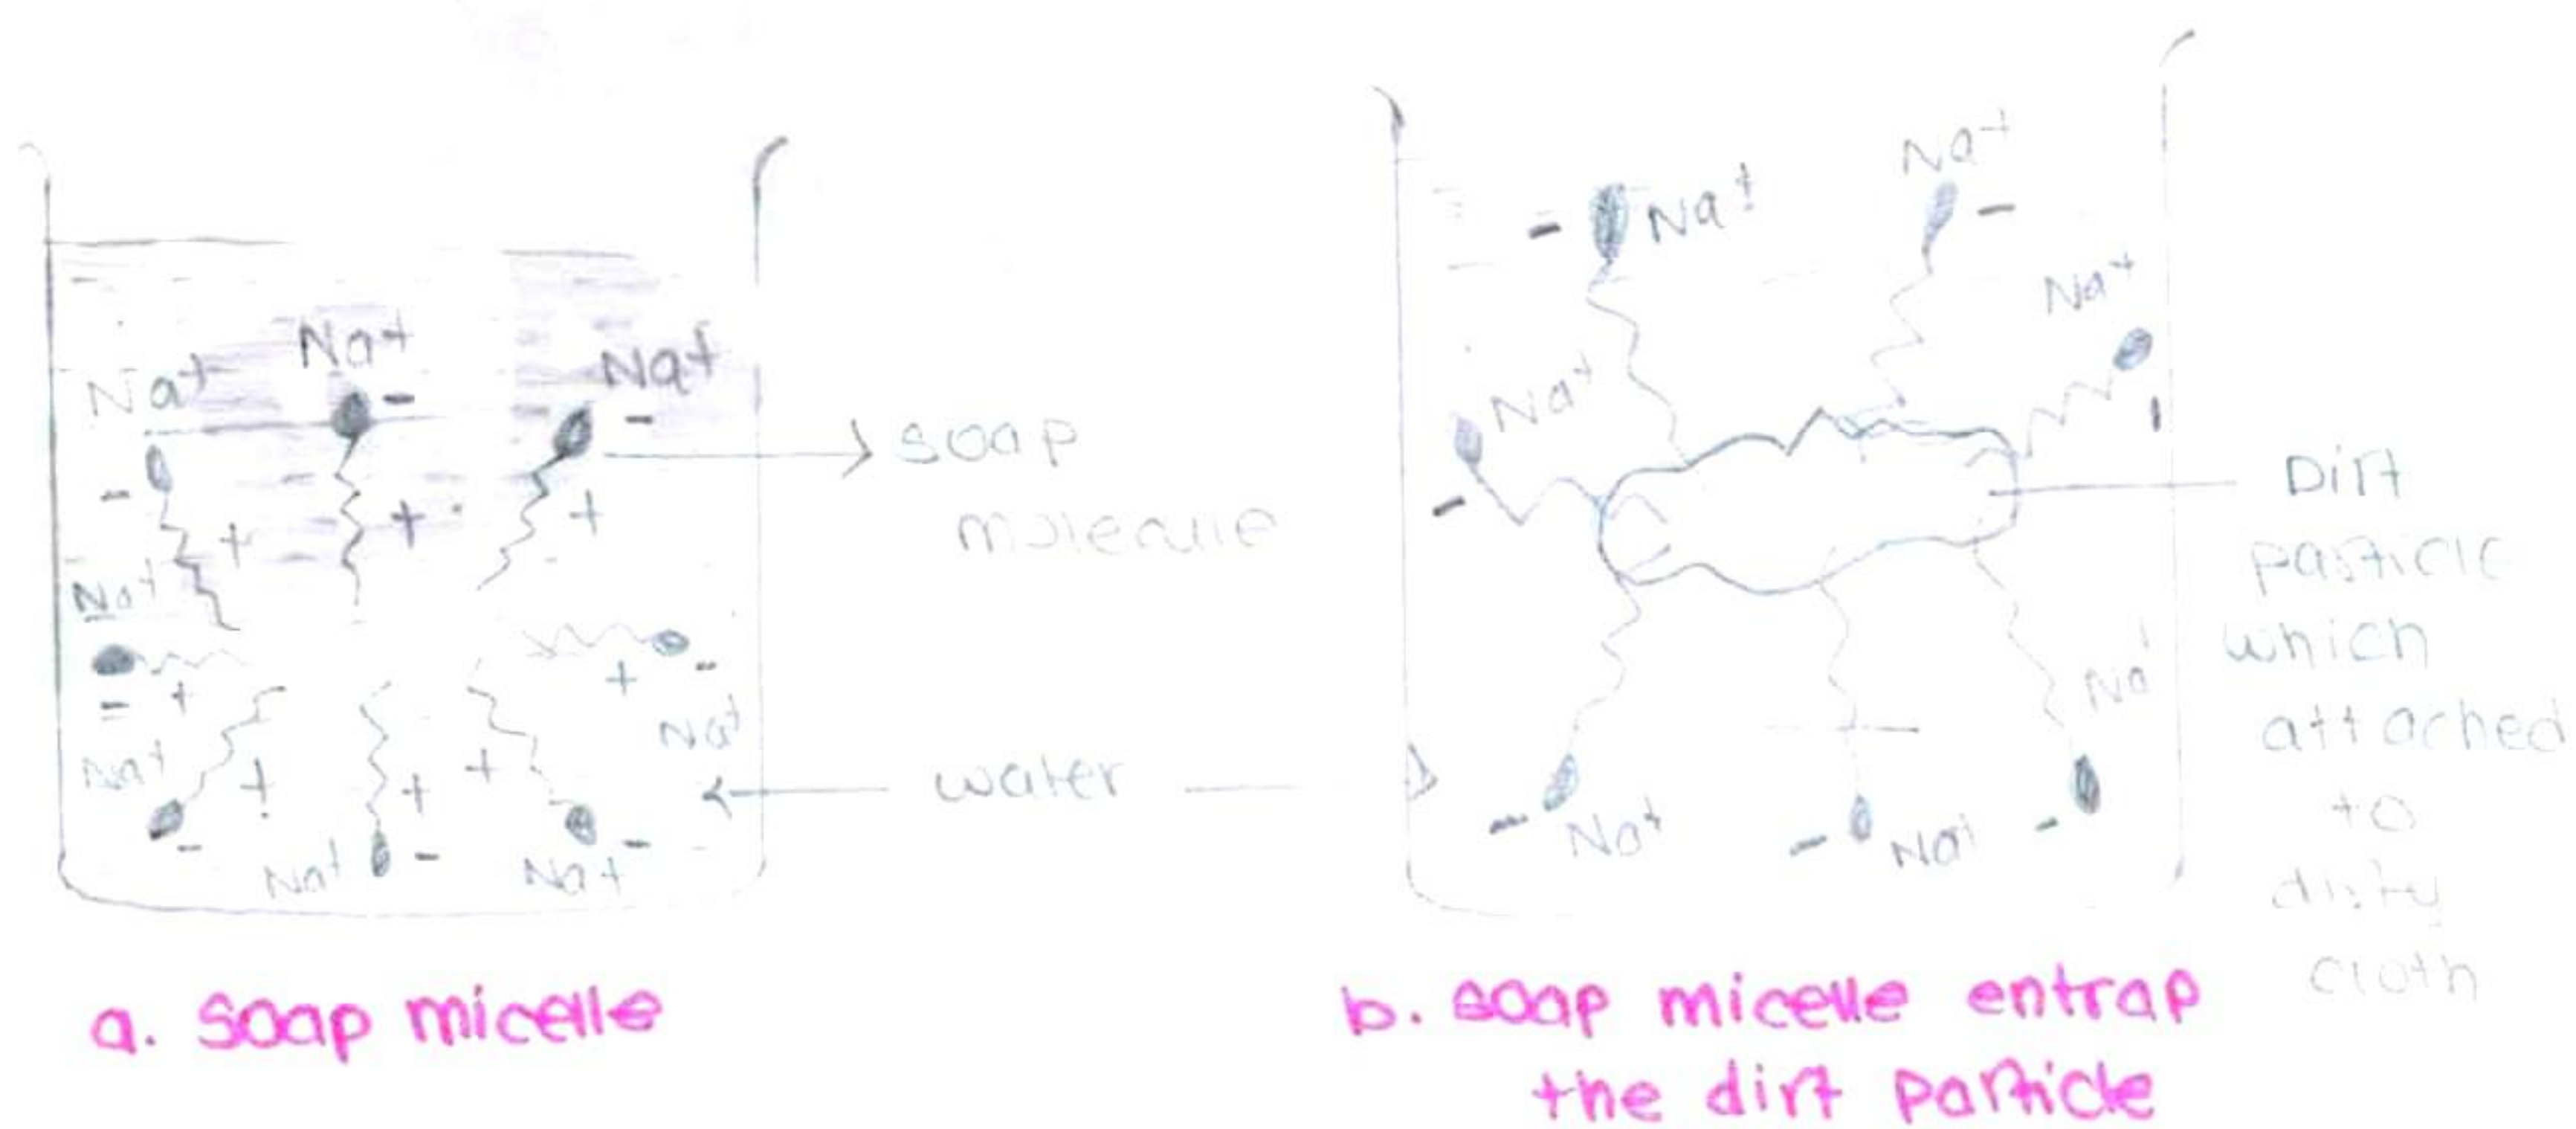 Na+
Na+
Na+
-
-
-
+
+
+
soap
molecule
Na+
-
+
+
-
Na+
Na+
+
+
+
-
Na+
-
Na+
-
water
a. soap micelle
-
Na+
Na+
-
Na+
-
Na+
-
Dirt
particle
which
attached
to
dirty
cloth
Na+
-
Na+
-
Na+
-
b. soap micelle entrap
the dirt particle